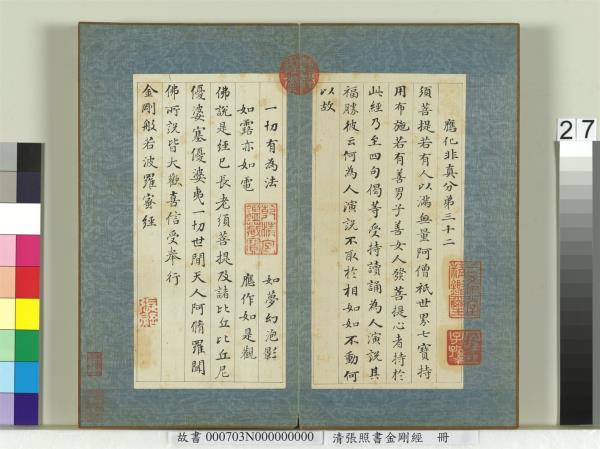 應化非真分第三十二
須菩提若有人以滿無量阿僧祇世界七寶持
用布施若有善男子善女人發菩提心者持於
此經乃至四句偈等受持讀誦為人演說其
福勝彼云何為人演說不取於相如如不動何
以故
一切有為法 如夢幻泡影
如露亦如電 應作如是觀
佛說是經已長老須菩提及諸比丘比丘尼
優婆塞優婆夷一切世間天人阿脩羅聞
佛所說皆大歡喜信受奉行
金剛般若波羅蜜經
27
故書 000703N000000000 清張照書金剛經 冊